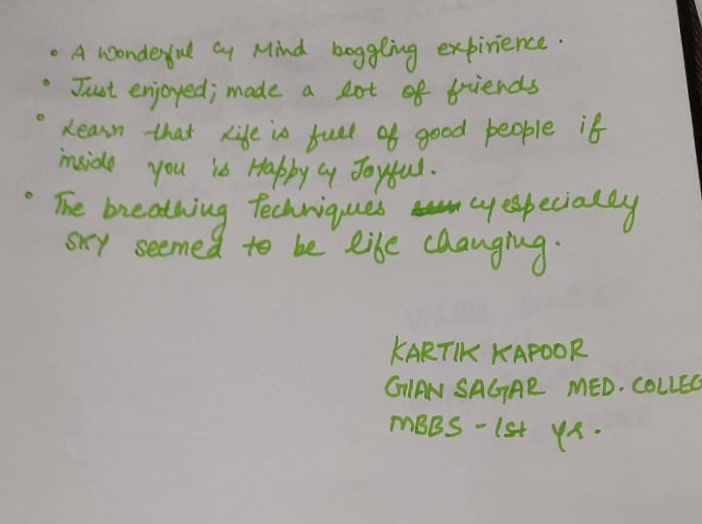 • A Wonderful & Mind boggling expirience.
• Just enjoyed; made a lot of friends
• Learn that Life is full of good people if
inside you is Happy & Joyful.
• The breathing Techniques & especially
SKY seemed to be life changing.
KARTIK KAPOOR
GIAN SAGAR MED. COLLEG
MBBS - 1st yr.